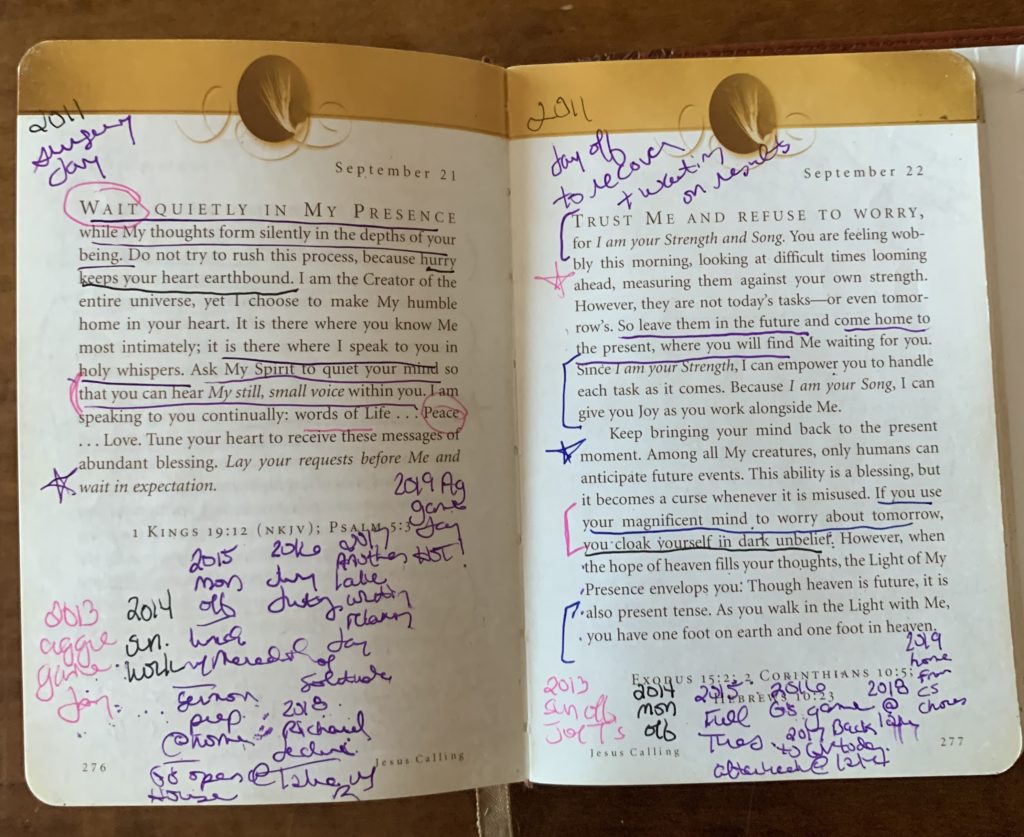 2011
surgery
day
September 21
WAIT QUIETLY IN MY PRESENCE
while My thoughts form silently in the depths of your
being. Do not try to rush this process, because hurry
keeps your heart earthbound. I am the Creator of the
entire universe, yet I choose to make My humble
home in your heart. It is there where you know Me
most intimately; it is there where I speak to you in
holy whispers. Ask My Spirit to quiet your mind so
that you can hear My still, small voice within you. I am
speaking to you continually: words of Life . . . Peace
. . . Love. Tune your heart to receive these messages of
abundant blessing. Lay your requests before Me and
wait in expectation.
2019 Ag
game
day
HOT!
1 KINGS 19:12 (NKJV); PSALM 5:3
2013
aggie
game
day
2014
sun.
work
2015
mon
off
lunch
w/ Meredith
sermon
prep
@ home
2016
jury
duty
2017
Another
lake
writing
retreat
day
of
solitude
2018
Richard
lecture
@ Lakeway
G8 open
House
276
Jesus Calling
2011
day off
to recover
+ waiting
on results
September 22
TRUST ME AND REFUSE TO WORRY,
for I am your Strength and Song. You are feeling wob-
bly this morning, looking at difficult times looming
ahead, measuring them against your own strength.
However, they are not today's tasks—or even tomor-
row's. So leave them in the future and come home to
the present, where you will find Me waiting for you.
Since I am your Strength, I can empower you to handle
each task as it comes. Because I am your Song, I can
give you Joy as you work alongside Me.
Keep bringing your mind back to the present
moment. Among all My creatures, only humans can
anticipate future events. This ability is a blessing, but
it becomes a curse whenever it is misused. If you use
your magnificent mind to worry about tomorrow,
you cloak yourself in dark unbelief. However, when
the hope of heaven fills your thoughts, the Light of My
Presence envelops you. Though heaven is future, it is
also present tense. As you walk in the Light with Me,
you have one foot on earth and one foot in heaven.
EXODUS 15:2; 2 CORINTHIANS 10:5;
HEBREWS 10:23
2013
Sun off
Joe T's
2014
mon
off
2015
Full
Tues
2016
G8 game @
2017 Back
to GW today
after week @ lake
2018
2019
home
from
CS
chores
Jesus Calling
277